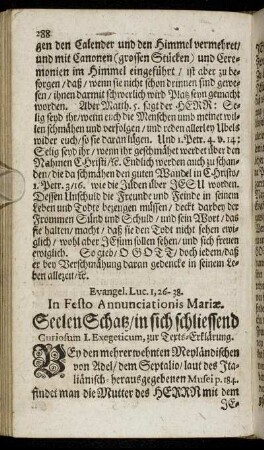 288
gen den Calender und den Himmel vermehret/
und mit Canonen (grossen Stücken) und Cere-
monien im Himmel eingeführt / ist aber zu be-
sorgen / daß / wenn sie nicht schon drinnen sind gewe-
sen / ihnen darmit schwerlich wird Plaz seyn gemacht
worden. Aber Matth. 5. sagt der HERR: Se-
lig seyd ihr/wenn euch die Menschen umb meinet wil-
len schmähen und verfolgen / und reden allerley Ubels
wider euch/ so sie daran lügen. Und 1. Petr. 4. v. 14:
Selig seyd ihr / wenn ihr geschmähet werdet über den
Nahmen C-Hristi/ꝛc. Endlich werden auch zu schan-
den / die da schmähen den guten Wandel in Christo/
1. Petr. 3/16. wie die Jüden über JESU worden.
Dessen Unschuld die Freunde und Feinde in seinem
Leben und Todte bezeugen müssen / deckt darber der
Frommen Sünd und Schuld / und sein Wort / das
sie halten / macht / daß sie den Todt nicht sehen ewi-
glich / wohl aber JEsum sollen sehen/ und sich freuen
ewiglich. So gieb/ O GOTT / doch jedem/daß
er bey Verschmähung daran gedencke in seinem Le-
ben allezeit/ꝛc.
Evangel. Luc. 1, 26-38.
In Festo Annunciationis Mariæ.
Seelen Schatz/ in sich schliessend
Curiosum I. Exegeticum, zur Texts-Erklärung.
BEy den mehrerwehnten Meyländischen
von Adel/ dem Septalio/ laut des Ita-
liänisch-herausgegebenen Musei p. 184.
findet man die Mutter des HERRN mit dem
JE-